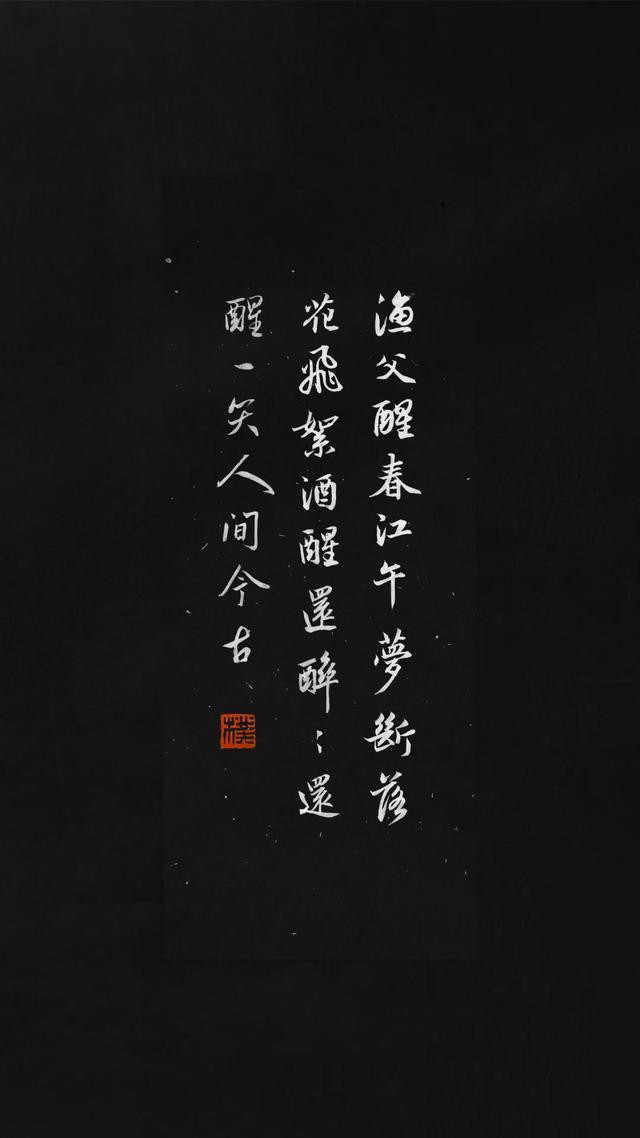 渔父醒春江午夢斷落
花飛絮酒醒還醉〻還
醒一笑人间今古